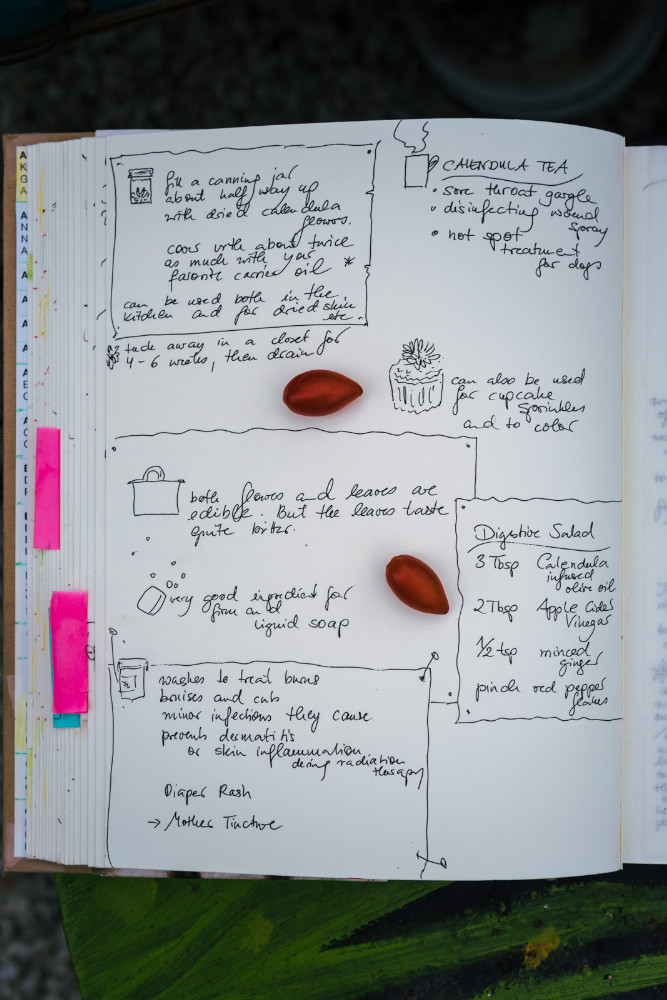 fill a canning jar
about half way up
with dried calendula
flowers.
cover with about twice
as much with your
favorite carrier oil *
can be used both in the
kitchen and for dried skin
etc.
tuck away in a closet for
4-6 weeks, then drain
CALENDULA TEA
• sore throat gargle
• disinfecting wound
spray
• hot spot
treatment
for dogs
can also be used
for cupcake
sprinkles
and to color
both flowers and leaves are
edible. But the leaves taste
quite bitter.
very good ingredient for
firm and
liquid soap
Digestive Salad
3 Tbsp Calendula
infused
olive oil
2 Tbsp Apple Cider
Vinegar
1/2 tsp minced
ginger
pinch red pepper
flakes
washes to treat burns
bruises and cuts
minor infections they cause
prevents dermatitis
or skin inflammation
during radiation
therapy
Diaper Rash
→ Mother Tincture
A
AKGA
ANNA